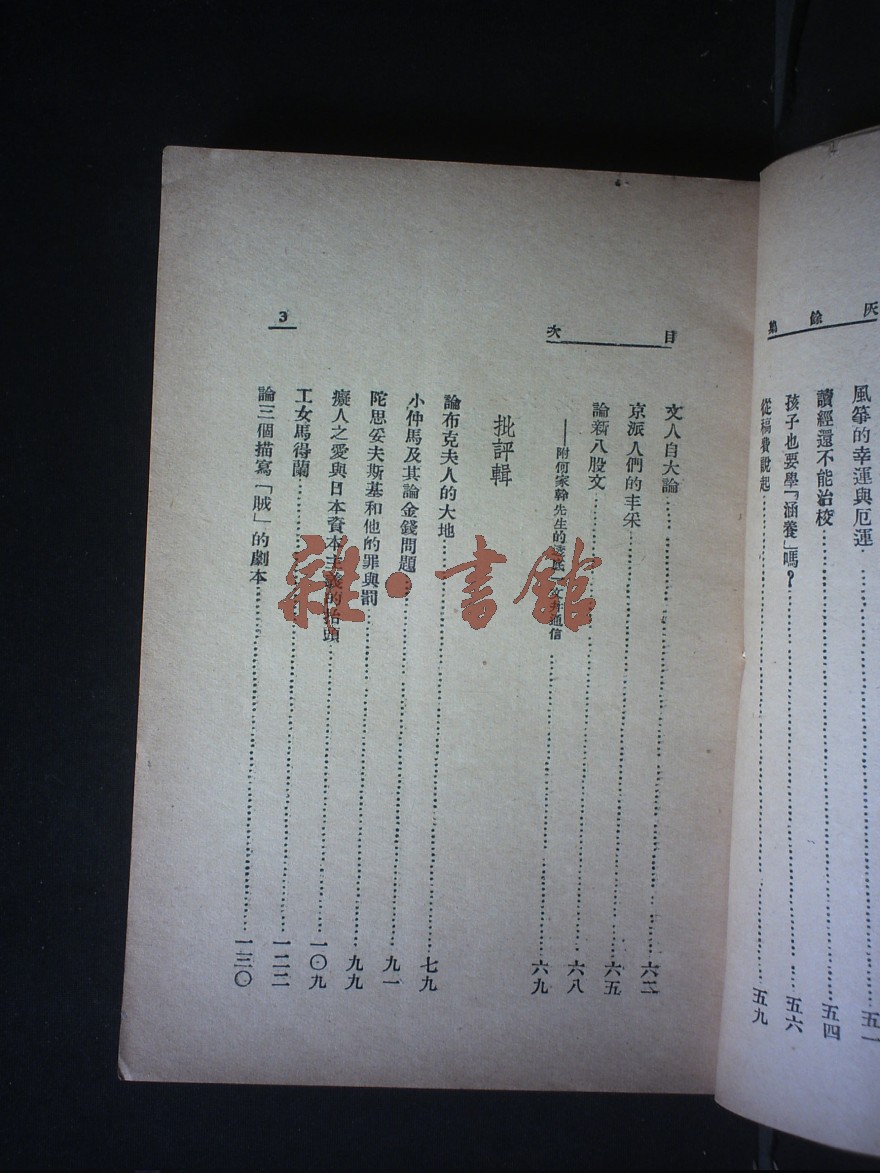 灰餘集
風箏的幸運與厄運……五一
讀經還不能治校……五四
孩子也要學「涵養」嗎？……五六
從稿費說起……五九
目次
文人自大論……六二
京派人們的丰采……六五
論新八股文……六八
——附何家幹先生的透底一文并通信……六九
批評輯
論布克夫人的大地……七九
小仲馬及其論金錢問題……九一
陀思妥夫斯基和他的罪與罰……九九
癡人之愛與日本資本主義的抬頭……一〇九
工女馬得蘭……一二二
論三個描寫「賊」的劇本……一三〇
3
雜·書館